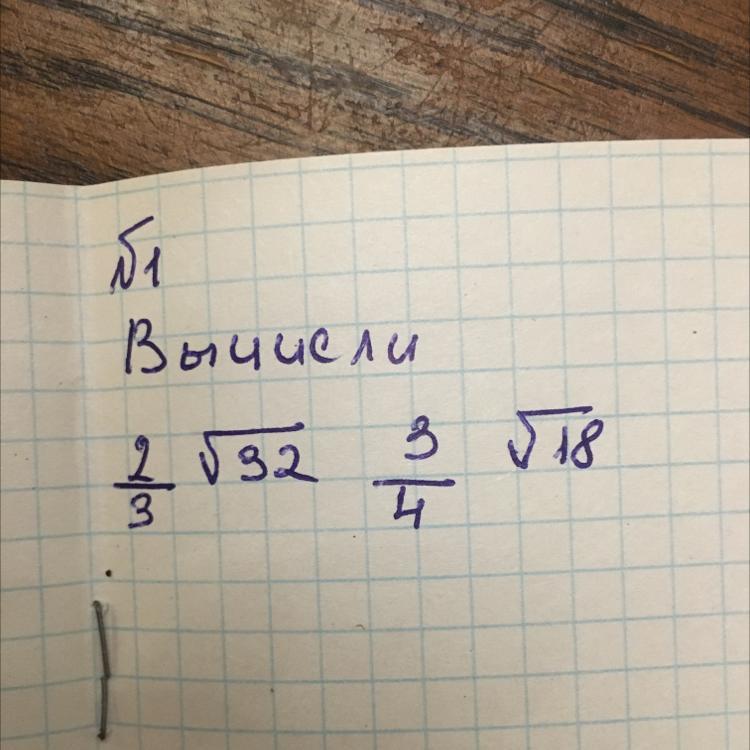 №1
Вычисли
2/3 √32 3/4 √18